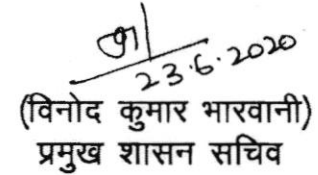 23.6.2020
(विनोद कुमार भारवानी)
प्रमुख शासन सचिव